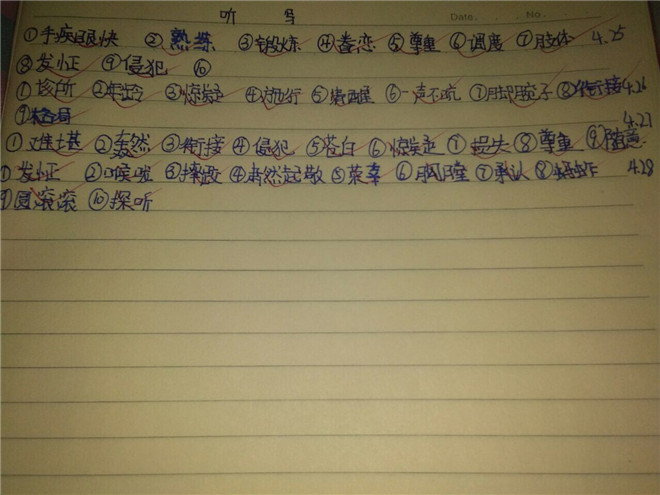 听 写 Date. . . No. . . .
①手疾眼快 ②熟练 ③锻炼 ④眷恋 ⑤尊重 ⑥调度 ⑦肢体 4.25
⑧发怔 ⑨侵犯 ⑩
①诊所 ②年龄 ③惊疑 ④ ⑤ ⑥一声不吭 ⑦胡子 ⑧衔接 4.26
⑨格局 4.27
①难堪 ②轰然 ③衔接 ④侵犯 ⑤苍白 ⑥惊疑 ⑦损失 ⑧尊重 ⑨随意
①发怔 ②喉咙 ③ ④肃然起敬 ⑤荣幸 ⑥胸膛 ⑦承认 ⑧蚂蚱 4.28
⑨圆滚滚 ⑩探听